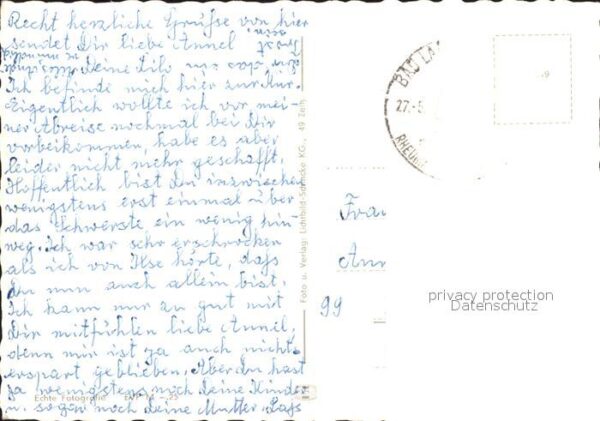 Recht herzliche Grüße von hier
sendet Dir liebe Annel
Deine Lilo
Ich befinde mich hier zur Kur.
Eigentlich wollte ich vor mei-
ner Abreise nochmal bei Dir
vorbeikommen, habe es aber
leider nicht mehr geschafft.
Hoffentlich bist du inzwischen
wenigstens erst einmal über
das Schwerste ein wenig hin
weg. Ich war sehr erschrocken
als ich von Ilse hörte, daß
du nun auch allein bist.
Ich kann nur zu gut mit
Dir mitfühlen liebe Annel,
denn mir ist ja auch nichts
erspart geblieben. Aber du hast
ja wenigstens noch deine Kinder
u. sogar noch deine Mutter. Laß
Echte Fotografie
Foto u. Verlag: Lichtbild-
KG., 49 Zeitz
BAD LA
27.-
RHEUM
Frau
Ann
99
privacy protection
Datenschutz